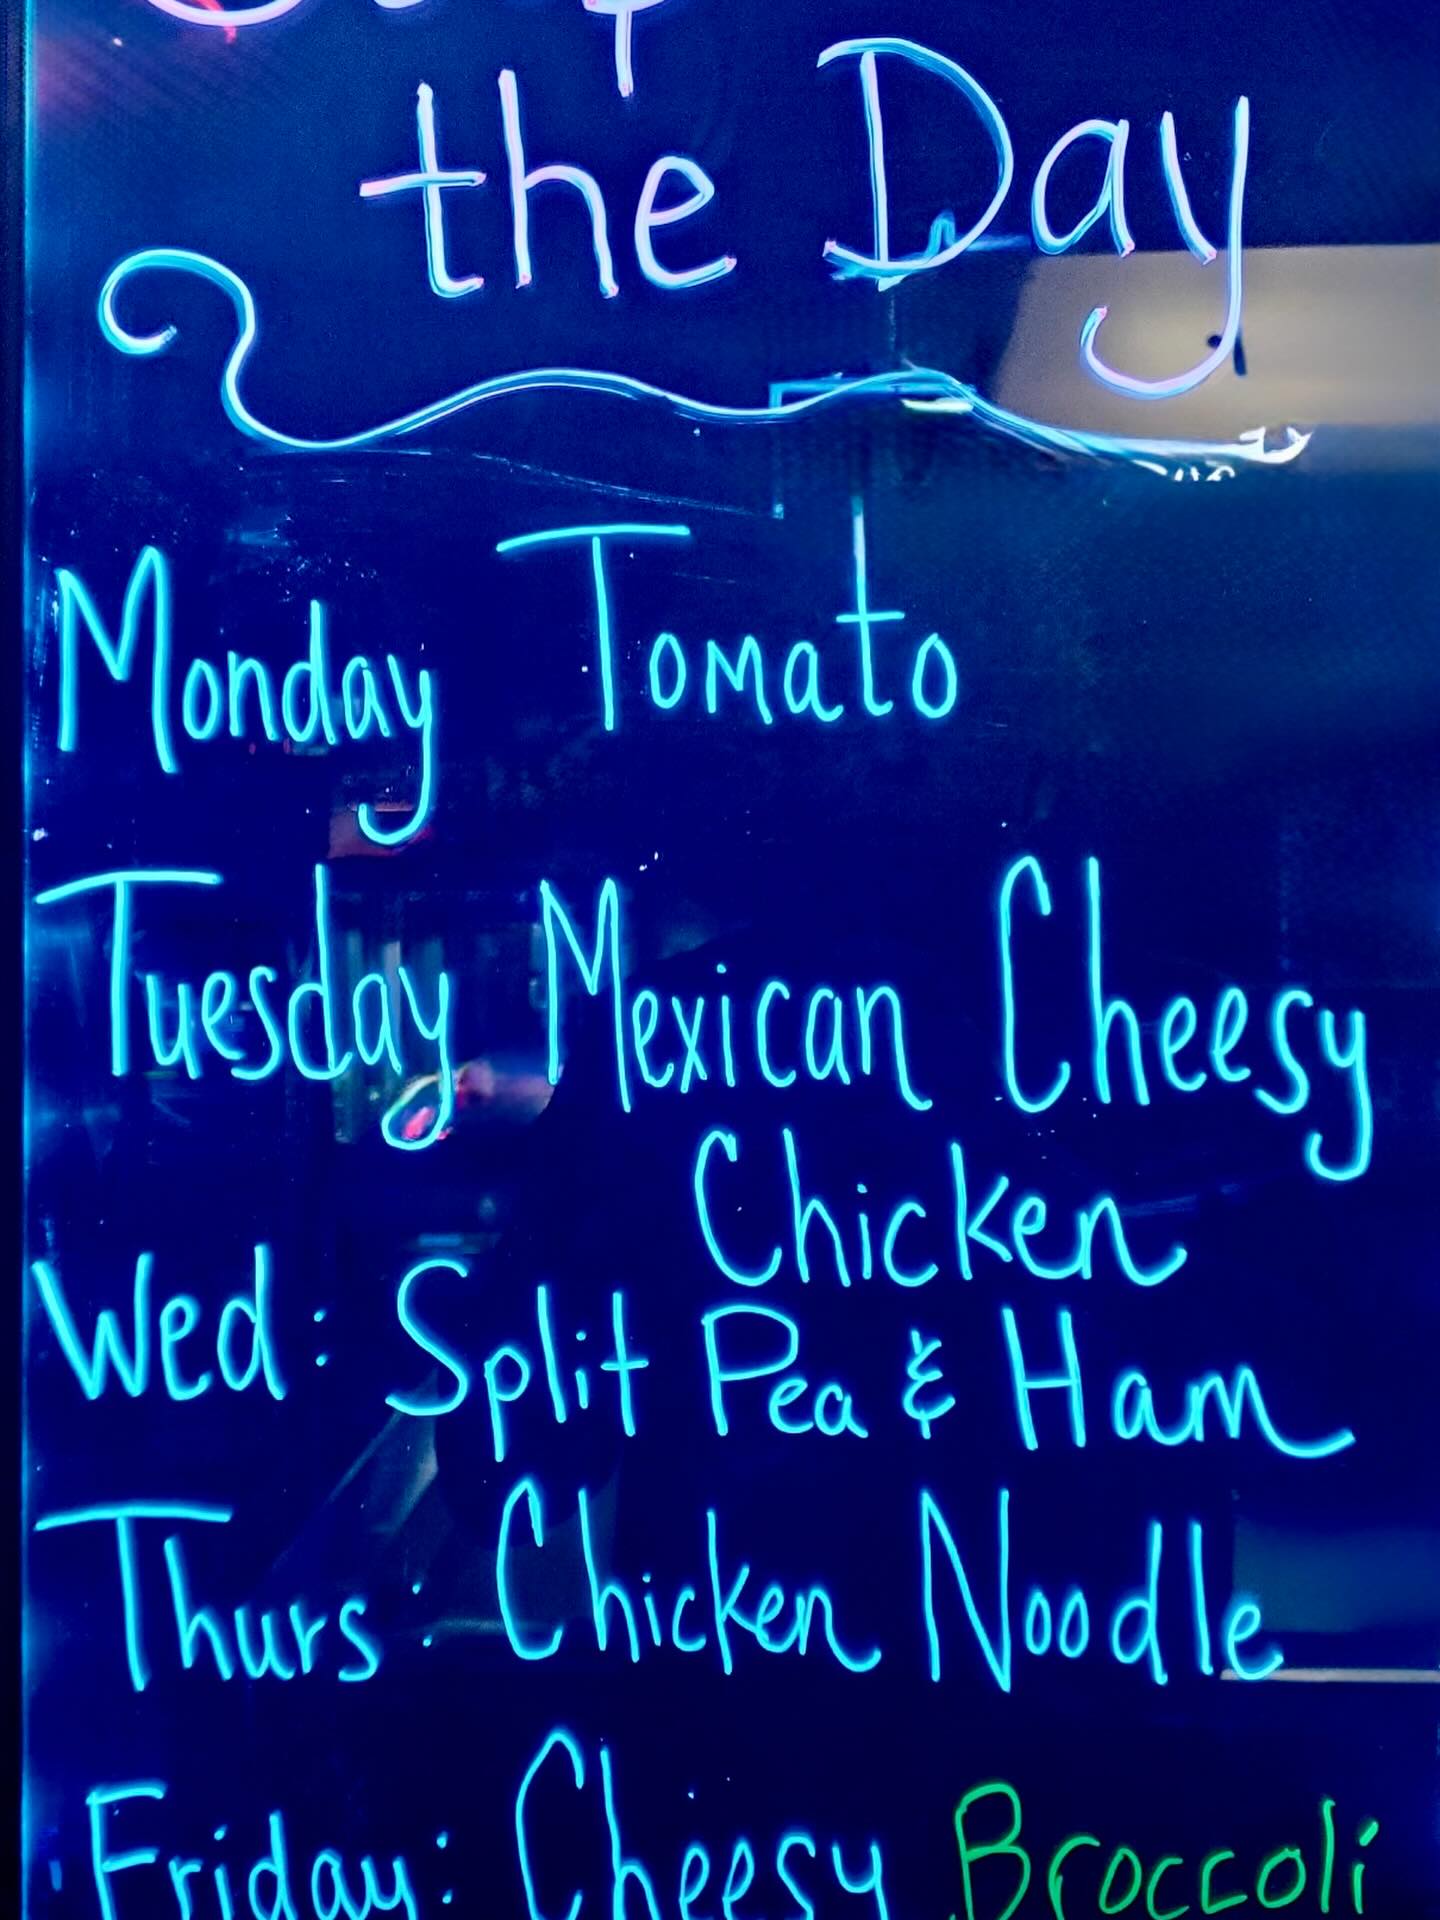 the Day
Monday Tomato
Tuesday Mexican Cheesy
Chicken
Wed: Split Pea & Ham
Thurs: Chicken Noodle
Friday: Cheesy Broccoli